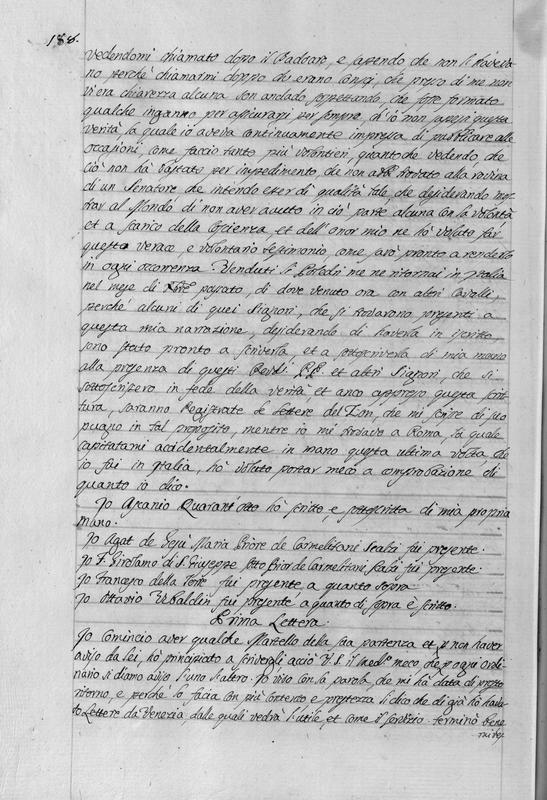 188.
Vedendomi chiamato dopo il Badoaro, e sapendo che non si doveva
no perché chiamarmi doppo che erano Longi, che presso di me non
vi era chiarezza alcuna son andato sospettando, che fosse formato
qualche inganno per assicurarsi per sempre, ch'io non sapessi questa
verità la quale io aveva continuamente impressa di pubblicare alle
occasioni, come faccio tanto più volontieri, quantoche vedendo, che
ciò non hà bastato per impedimento, che non abbi trovato alla rovina
di un Senatore che intendo esser di qualità tale, che desiderando mo
strar al Mondo di non aver avuto in ciò parte alcuna con la volontà
et a scarico della Coscienza, et dell'onor mio ne hò voluto far
questo verace, e volontario testimonio, come sarò pronto a renderlo
in ogni occorrenza Venduti li Poledri me ne ritornai in Italia
nel mese di passato, di dove venuto ora con altri Cavalli,
perché alcuni di quei Signori, che si trovarono presenti a
questa mia narrazione, desiderando di haverla in iscritto
sono stato pronto a scriverla, et a sottoscriverla di mia mano
alla presenza di questi Revdi. P.P. et altri Signori, che si
sottoscrissero in fede della verità et anco appresso questa scrit
tura, saranno Registrate le lettere del che mi scrisse di suo
pugno in tal proposito, mentre io mi trovavo a Roma, la quale
capitatami accidentalmente in mano questa ultima volta, che
io fui in Italia, hò voluto portar meco a comprobazione di
quanto io dico.
Io Ascanio Quarant'otto hò scritto, e sottoscritto di mia propria
mano.
Io Agat. de Gesù Maria Priore de Carmelitani Scalzi fui presente.
Io F. Girolamo di S. Giuseppe Sotto Prior de Carmelitani Scalzi fui presente.
Io Francesco della Torre fui presente, a quanto sopra.
Io Ottavio Ubaldin fui presente a quanto di sopra è scritto.
Prima Lettera.
Io Comincio aver qualche Martello della sua partenza et p non haver
aviso da lei, hò principiato a scrivergli acciò V.S. il med.mo meco, che p ogni ordi
nario si diamo aviso l'uno l'altro. Io vito con la parola, che mi hà data di presto
ritorno, e perché lo facia con più contento e prestezza li dico che di già hò havu
to Lettere da Venezia, dalle quali vedrà l'utile, et come il servizio terminò bene